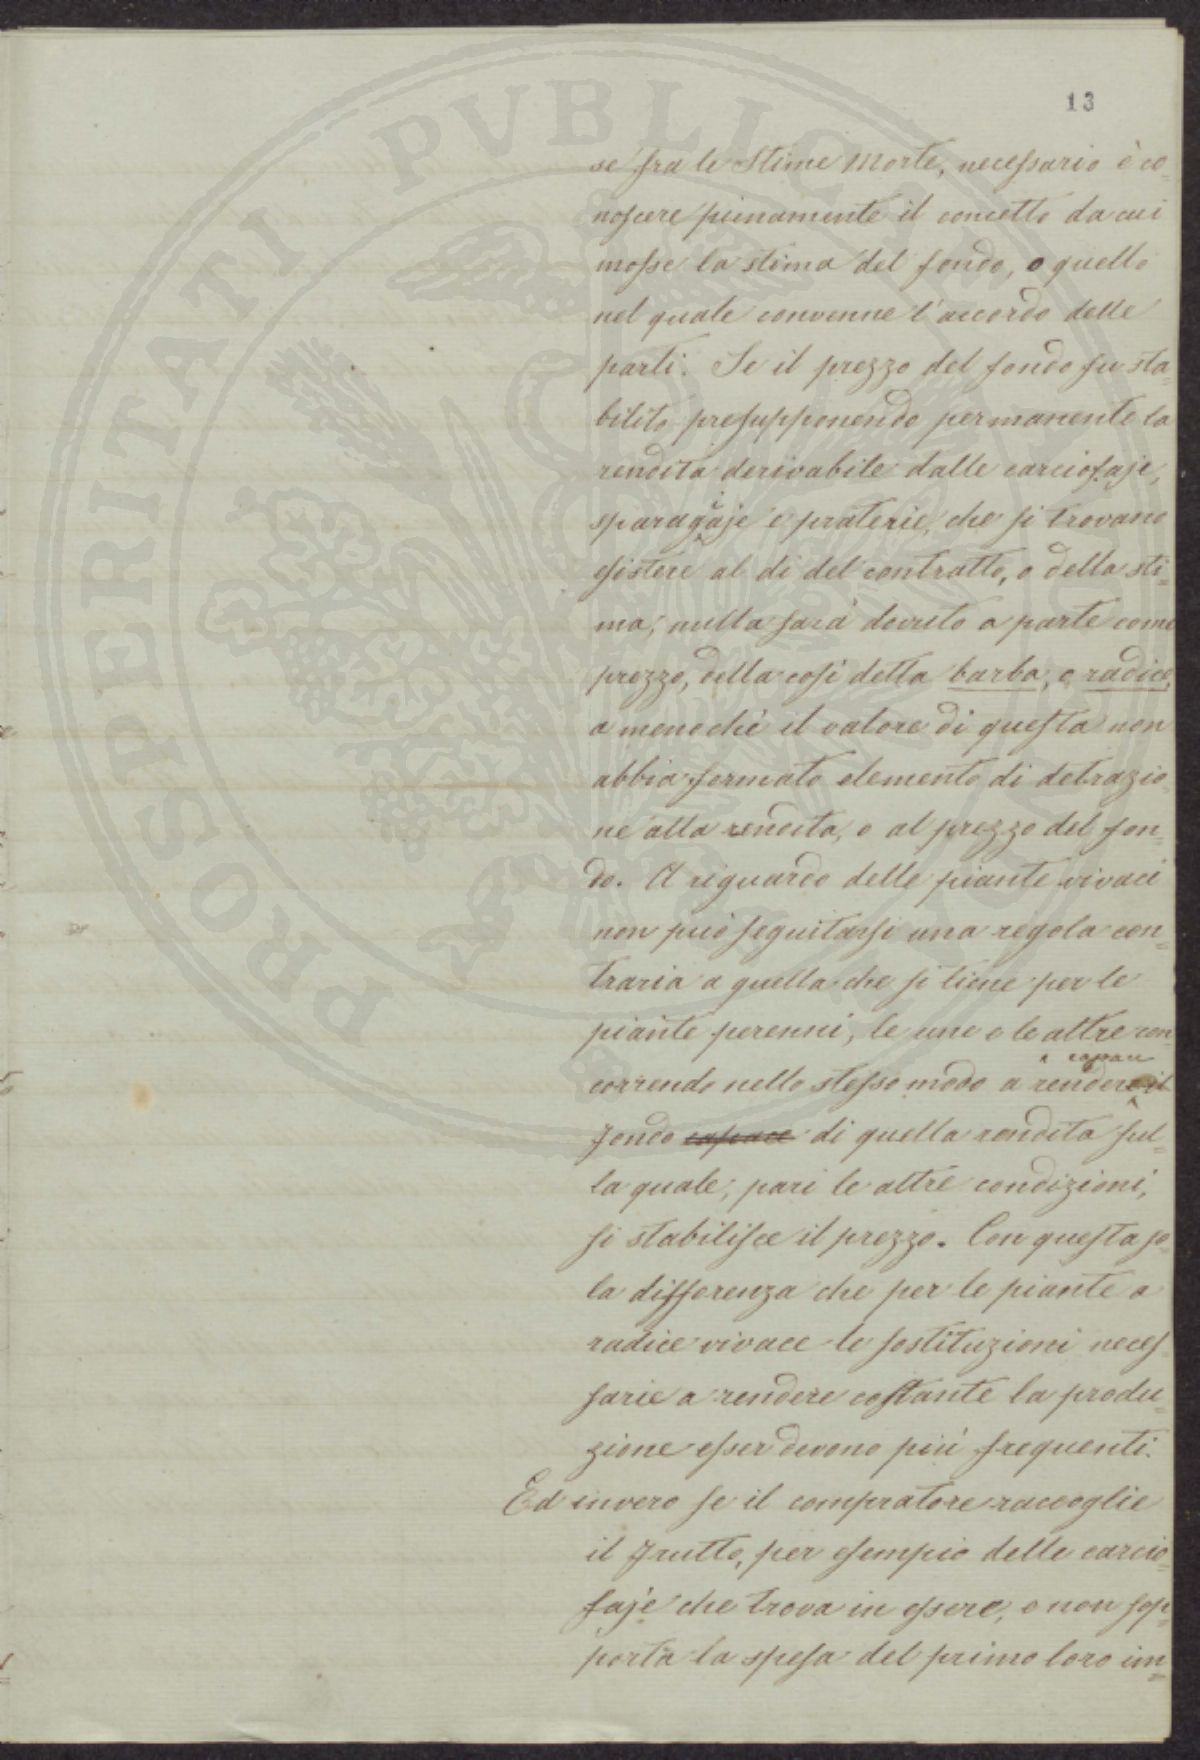 13
se fra le Stime Morte, necessario è co-
noscere pienamente il concetto da cui
mosse la stima del fondo, o quello
nel quale convenne l'accordo delle
parti. Se il prezzo del fondo fu sta-
bilito presupponendo permanente la
rendita derivabile dalle carciofaje,
sparagiaje e praterie, che si trovano
esistere al dì del contratto, o della sti-
ma, nulla sarà dovuto a parte come
prezzo, della così detta barba, o radice,
a menochè il valore di questa non
abbia formato elemento di detrazio-
ne alla rendita, o al prezzo del fon-
do. A riguardo delle piante vivaci
non può seguitarsi una regola con-
traria a quella che si tiene per le
piante perenni, le une e le altre con-
correndo nello stesso modo a rendere capace il
fondo capace di quella rendita sul-
la quale, pari le altre condizioni,
si stabilisce il prezzo. Con questa so-
la differenza che per le piante a
radice vivace le sostituzioni neces-
sarie a rendere costante la produ-
zione esser devono più frequenti.
Ed invero se il compratore raccoglie
il frutto, per esempio delle carcio-
faje che trova in essere, e non sop-
porta la spesa del primo loro im-
PROSPERITATI PVBLICAE